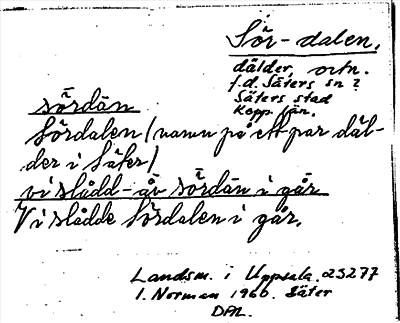 Sör-dalen,
dälder, ortn.
f.d. Säters sn i
Säters stad
Kopp. län.
sördàn
Sördalen (namn på ett par däl-
der i Säter)
vi slådd- åv sördàn i går
Vi slådde Sördalen i går.
Landsm. i Uppsala. 23277
I. Norman 1960. Säter
DAL.